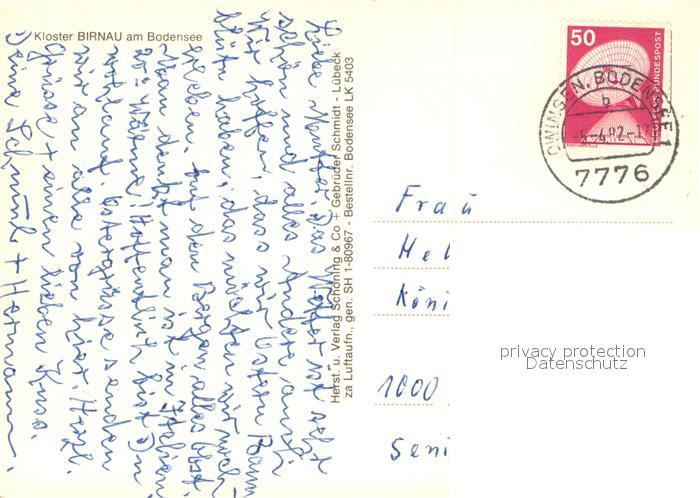 Kloster BIRNAU am Bodensee
Liebe das Wetter ist sehr
schön und alles andere auch.
Wir hoffen, dass wir Ostern Baum
blüte haben, das möchten wir noch
erleben. Auf den Bergen alles
Man denkt man ist in Italien
so Wärme. Hoffentlich bist Du
wohlauf. Ostergrüsse senden
wir an alle von hier. Herzl.
Grüsse + einen lieben Kuss.
Deine + Hermann.
Herst. u. Verlag Schöning & Co + Gebrüder Schmidt - Lübeck
za Luftaufn., gen. SH 1-80967 - Bestellnr. Bodensee LK 5403
50
DEUTSCHE BUNDESPOST
OWINGEN, BODENSEE 1
b
-4.82-17
7776
Frau
Hel
Köni
1000
Seni
privacy protection
Datenschutz